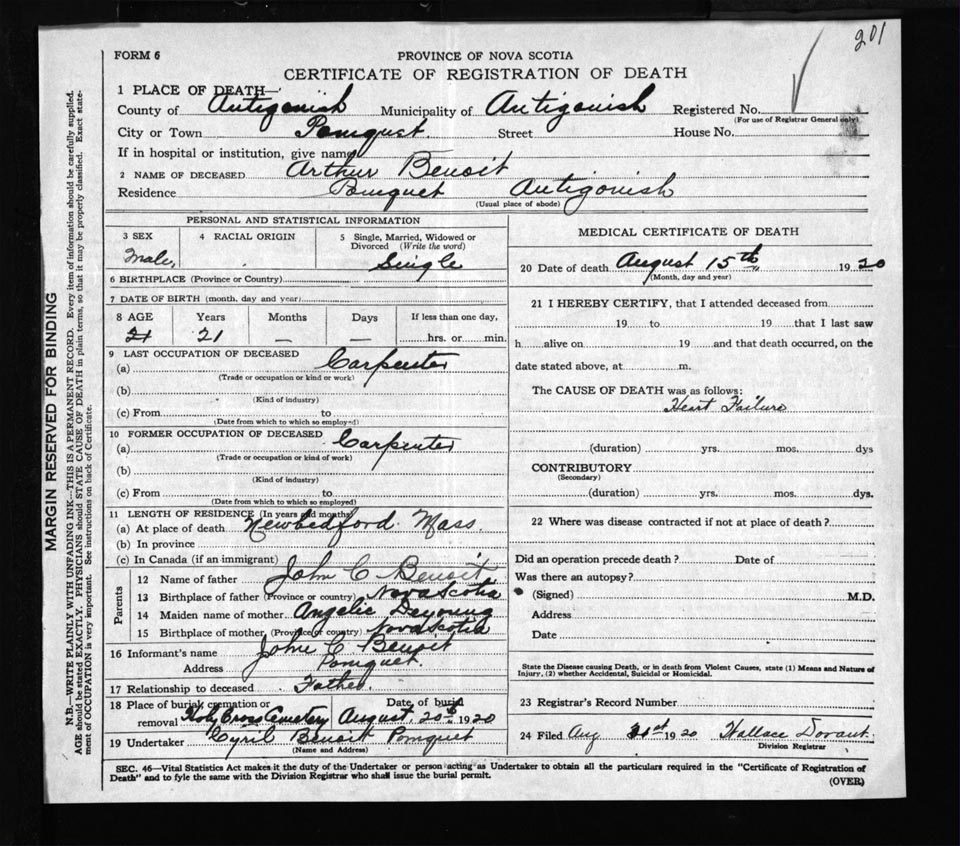 201
FORM 6
PROVINCE OF NOVA SCOTIA
CERTIFICATE OF REGISTRATION OF DEATH
1 PLACE OF DEATH—
County of Antigonish Municipality of Antigonish Registered No.
(For use of Registrar General only)
City or Town Pomquet Street House No.
If in hospital or institution, give name
2 NAME OF DECEASED Arthur Benoit
Residence Pomquet Antigonish
(Usual place of abode)
PERSONAL AND STATISTICAL INFORMATION
3 SEX 4 RACIAL ORIGIN 5 Single, Married, Widowed or Divorced (Write the word)
Male, Single
6 BIRTHPLACE (Province or Country)
7 DATE OF BIRTH (month, day and year)
8 AGE Years Months Days If less than one day,
21 21 — — hrs. or min.
9 LAST OCCUPATION OF DECEASED
(a) Carpenter
(Trade or occupation or kind or work)
(b)
(Kind of industry)
(c) From to
(Date from which to which so employed)
10 FORMER OCCUPATION OF DECEASED
(a) Carpenter
(Trade or occupation or kind of work)
(b)
(Kind of industry)
(c) From to
(Date from which to which so employed)
11 LENGTH OF RESIDENCE (In years and months)
(a) At place of death Newbedford Mass.
(b) In province
(c) In Canada (if an immigrant)
Parents
12 Name of father John C Benoit
13 Birthplace of father (Province or country) Nova Scotia
14 Maiden name of mother Angelic Deyoung
15 Birthplace of mother (Province or country) Nova Scotia
16 Informant's name John C Benoit
Address Pomquet.
17 Relationship to deceased Father.
18 Place of burial, cremation or removal Holy Cross Cemetery Date of burial August, 20th 1920
19 Undertaker Cyril Benoit Pomquet
(Name and Address)
MEDICAL CERTIFICATE OF DEATH
20 Date of death August 15th 1920
(Month, day and year)
21 I HEREBY CERTIFY, that I attended deceased from
19 to 19 that I last saw
h alive on 19 and that death occurred, on the
date stated above, at m.
The CAUSE OF DEATH was as follows:
Heart Failure
(duration) yrs. mos. dys
CONTRIBUTORY
(Secondary)
(duration) yrs. mos. dys.
22 Where was disease contracted if not at place of death?
Did an operation precede death? Date of
Was there an autopsy?
(Signed) M.D.
Address
Date
State the Disease causing Death, or in death from Violent Causes, state (1) Means and Nature of
Injury, (2) whether Accidental, Suicidal or Homicidal.
23 Registrar's Record Number
24 Filed Aug 21st 1920 Wallace
Division Registrar
SEC. 46—Vital Statistics Act makes it the duty of the Undertaker or person acting as Undertaker to obtain all the particulars required in the "Certificate of Registration of
Death" and to fyle the same with the Division Registrar who shall issue the burial permit.
(OVER)
MARGIN RESERVED FOR BINDING
N.B.—WRITE PLAINLY WITH UNFADING INK—THIS IS A PERMANENT RECORD. Every item of information should be carefully supplied.
AGE should be stated EXACTLY. PHYSICIANS should STATE CAUSE OF DEATH in plain terms, so that it may be properly classified. Exact state-
ment of OCCUPATION is very important. See instructions on back of Certificate.